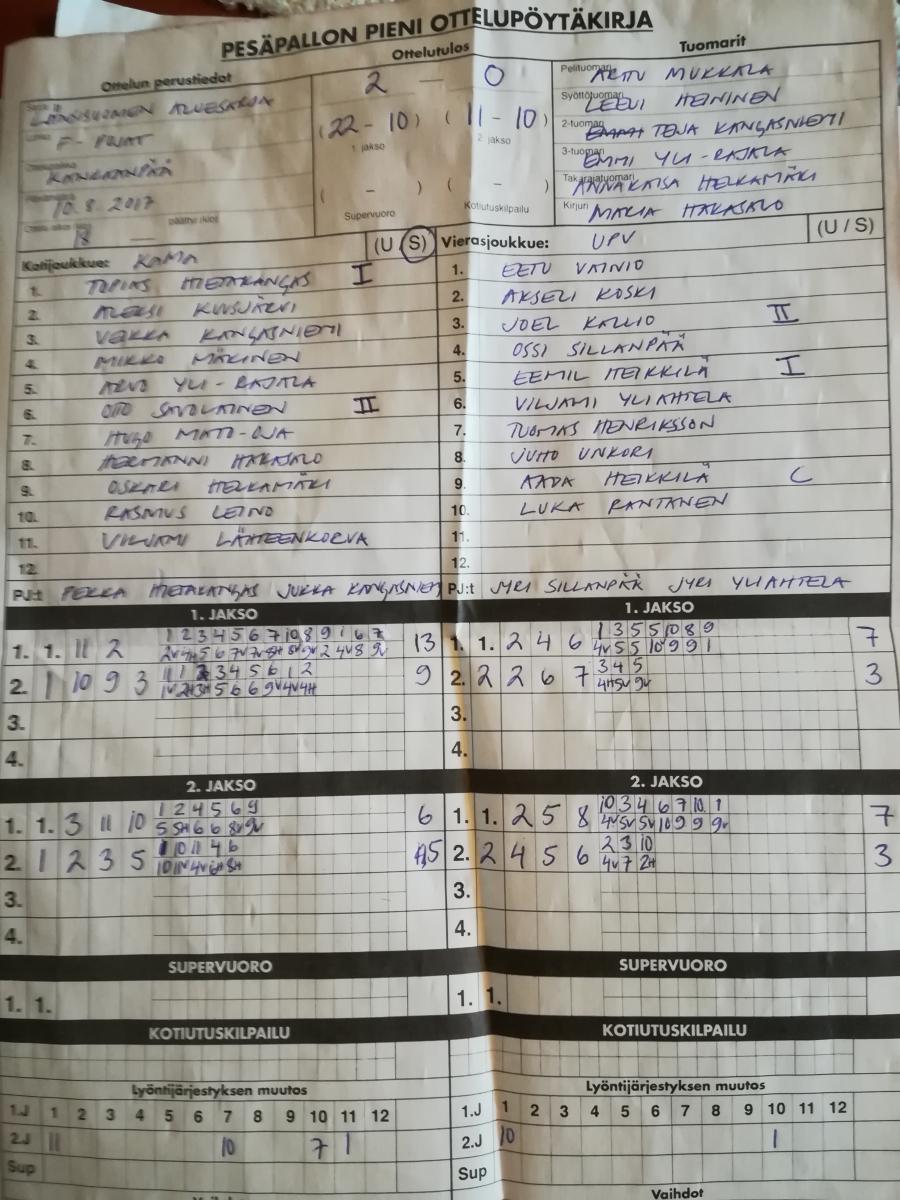 PESÄPALLON PIENI OTTELUPÖYTÄKIRJA
Ottelun perustiedot
Ottelutulos
Tuomarit
LÄNSISUOMEN ALUESARJA
F-POJAT
KANKAANPÄÄ
10.8.2017
18 — päättyi (klo)
2 — 0
(22 - 10) (11 - 10)
1. jakso 2. jakso
( - ) ( - )
Supervuoro Kotiutuskilpailu
Pelituomari ARTTU MUKKALA
Syöttötuomari LEEVI HEININEN
2-tuomari TEJA KANGASNIEMI
3-tuomari EMMI YLI-RAJALA
Takarajatuomari ANNAKAISA HELKAMÄKI
Kirjuri MARIA HAKASALO
Kotijoukkue: KAMA (U / S)
1. TOPIAS HIETAKANGAS I
2. ALEKSI KUUSJÄRVI
3. VEIKKA KANGASNIEMI
4. MIKKO MÄKINEN
5. ARVO YLI-RAJALA
6. OTTO SAVOLAINEN II
7. HUGO MATO-OJA
8. HERMANNI HAKASALO
9. OSKARI HELKAMÄKI
10. RASMUS LEINO
11. VILJAMI LÄHTEENKORVA
12.
PJ:t PEKKA HIETAKANGAS JUKKA KANGASNIEMI
Vierasjoukkue: UPV (U / S)
1. EETU VAINIO
2. AKSELI KOSKI
3. JOEL KALLIO II
4. OSSI SILLANPÄÄ
5. EEMIL HEIKKILÄ I
6. VILJAMI YLIAHTELA
7. TUOMAS HENRIKSSON
8. JUHO UNKURI
9. AADA HEIKKILÄ C
10. LUKA RANTANEN
11.
12.
PJ:t JYRI SILLANPÄÄ JYRI YLIAHTELA
1. JAKSO
1. 1. 11 2 1 2 3 4 5 6 7 10 8 9 1 6 7 13
2. 1 10 9 3 9
3.
4.
1. JAKSO
1. 1. 2 4 6 1 3 5 5 10 8 9 7
4v 5 5 10v 9 9 1
2. 2 2 6 7 3 4 5 3
4H 5v 9v
3.
4.
2. JAKSO
1. 1. 3 11 10 1 2 4 5 6 9 6
5 5H 6 6 8v 9v
2. 1 2 3 5 1 10 11 4 6 5
3.
4.
2. JAKSO
1. 1. 2 5 8 10 3 4 6 7 10 1 7
4v 5v 5v 10 9 9 9v
2. 2 4 5 6 2 3 10 3
4v 7 2H
3.
4.
SUPERVUORO
1. 1.
SUPERVUORO
1. 1.
KOTIUTUSKILPAILU
KOTIUTUSKILPAILU
Lyöntijärjestyksen muutos
1.J 1 2 3 4 5 6 7 8 9 10 11 12
2.J 11 10 7 1
Sup
Lyöntijärjestyksen muutos
1.J 1 2 3 4 5 6 7 8 9 10 11 12
2.J 10 1
Sup
Vaihdot